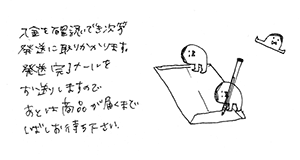 入金を確認でき次第
発送に取りかかります。
発送完了メールを
お送りしますので
あとは商品が届くまで
しばしお待ち下さい。